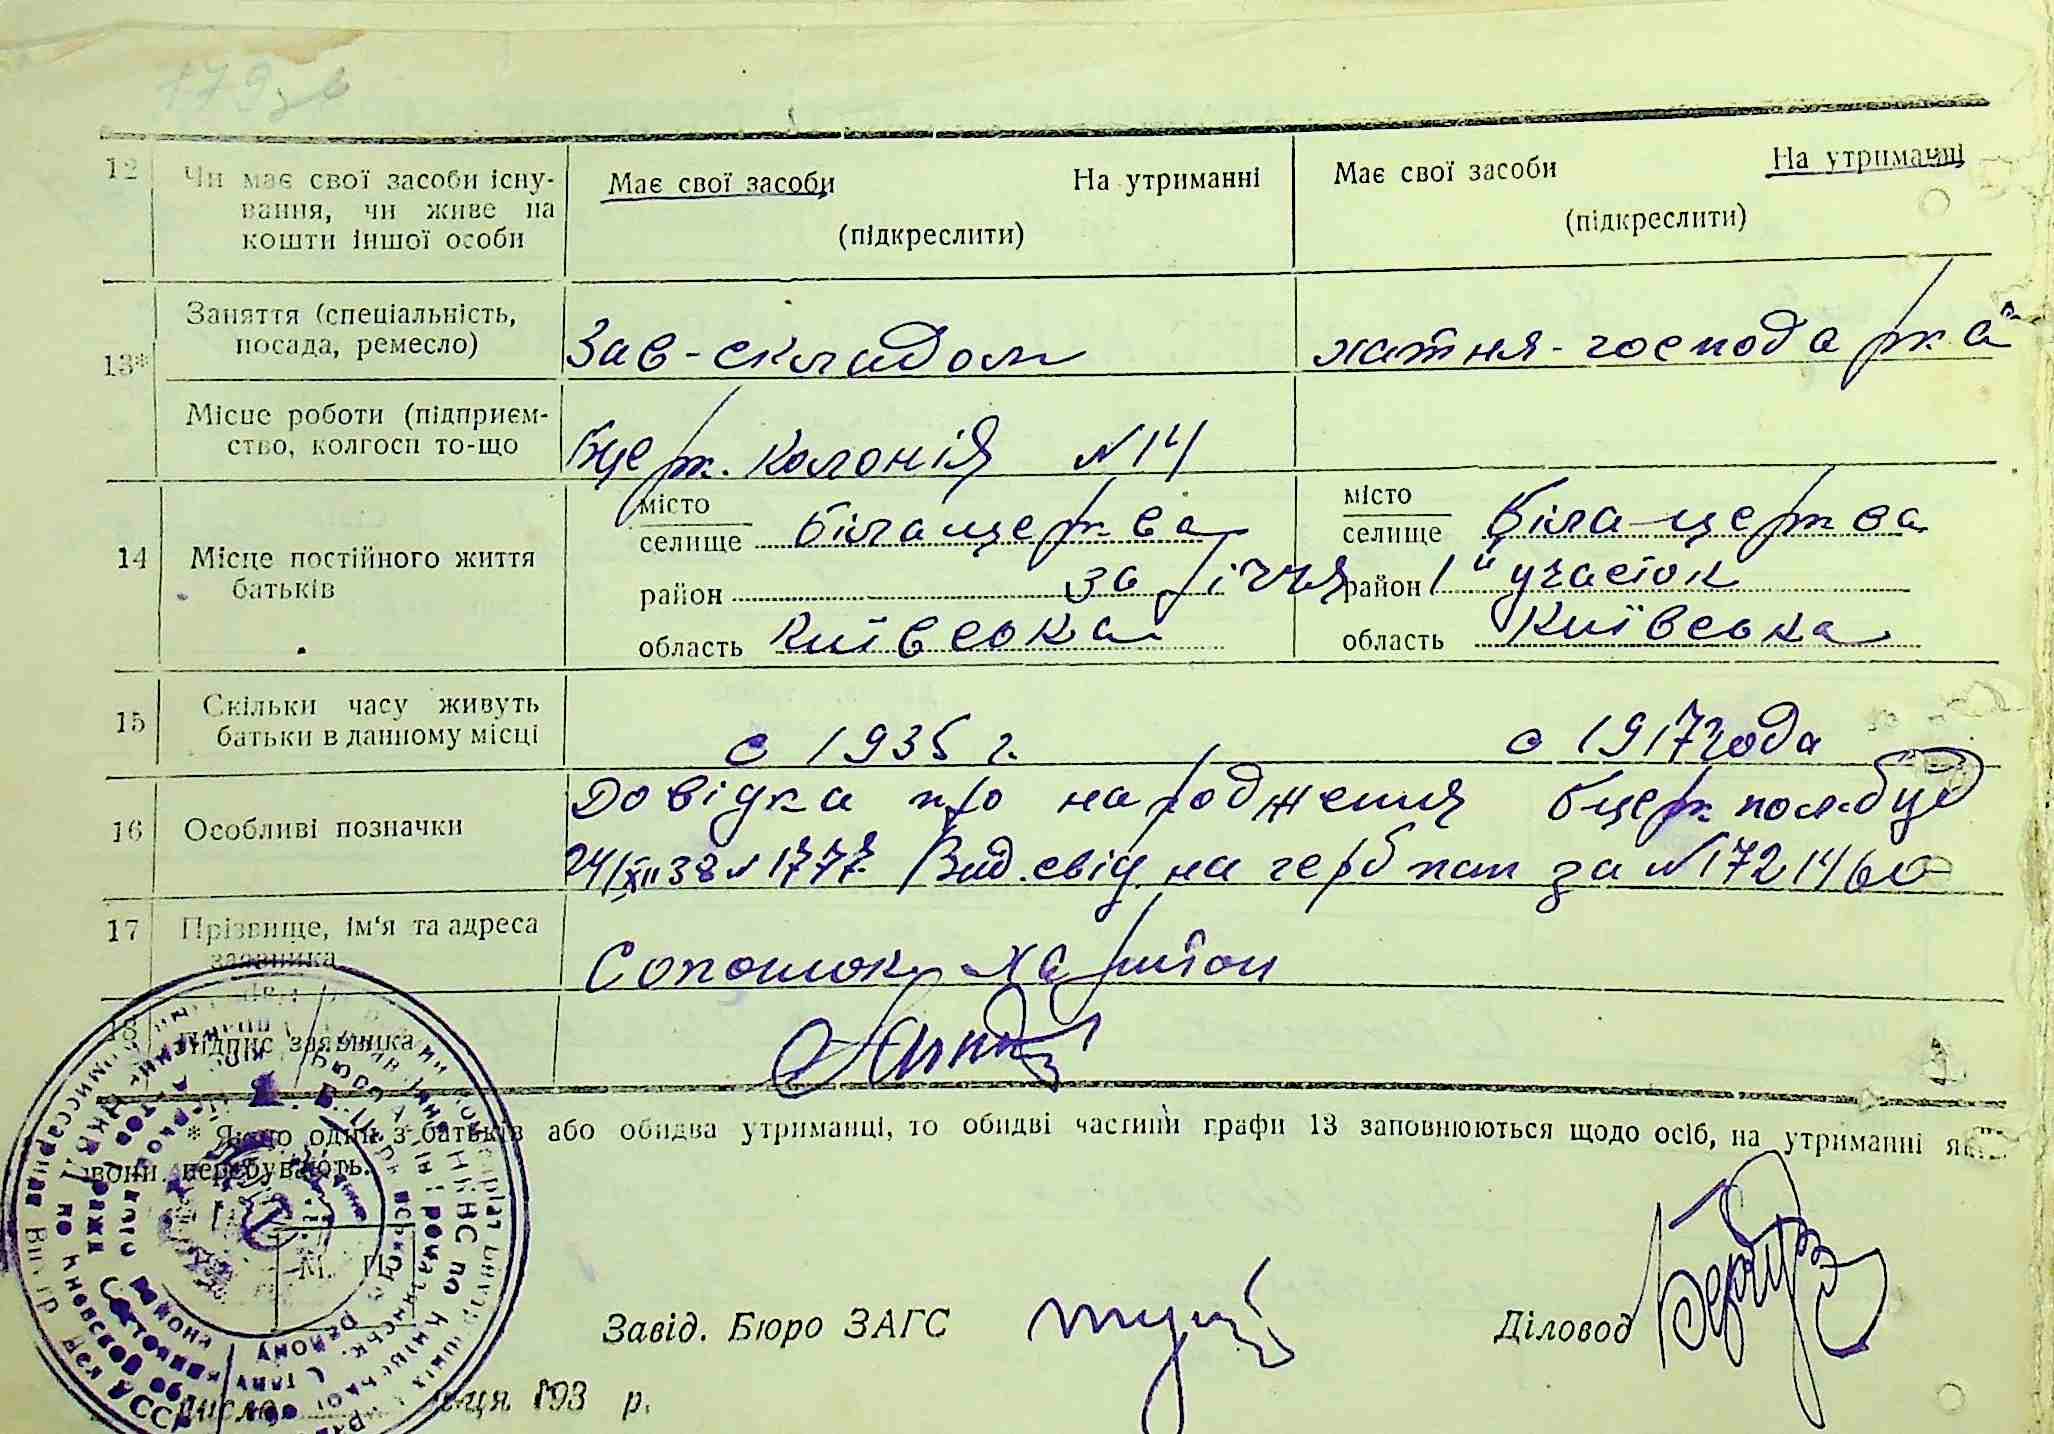 179 зв
12 Чи має свої засоби існу-
вання, чи живе на
кошти іншої особи
Має свої засоби На утриманні
(підкреслити)
Має свої засоби На утриманні
(підкреслити)
13* Заняття (спеціальність,
посада, ремесло)
Зав-складом
хатня-господарка
Місце роботи (підприєм-
ство, колгосп то-що
Бцерк. Колонія N 14
14 Місце постійного життя
батьків
місто
селище Біла церква
район зарiччя
область Київська
місто
селище Біла-церква
район 1й участок
область Київська
15 Скільки часу живуть
батьки в данному місці
с 1935 г.
с 1917 года
16 Особливі позначки
Довідка про народження бцерк
24/XII 38 N 1777. Вид. свід на герб пап за N 172
17 Прізвище, ім'я та адреса
заявника
Харитон
18 Підпис заявника
* Якщо один з батьків або обидва утриманці, то обидві частини графи 13 заповнюються щодо осіб, на утриманні яких
вони перебувають.
М. П.
Завід. Бюро ЗАГС
Діловод
число 193 р.